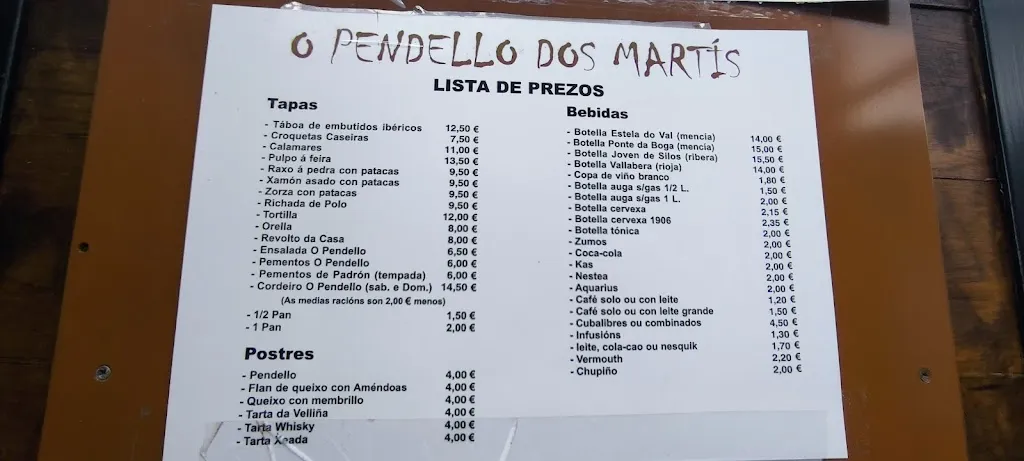 O PENDELLO DOS MARTÍS
LISTA DE PREZOS
Tapas
- Táboa de embutidos ibéricos 12,50 €
- Croquetas Caseiras 7,50 €
- Calamares 11,00 €
- Pulpo á feira 13,50 €
- Raxo á pedra con patacas 9,50 €
- Xamón asado con patacas 9,50 €
- Zorza con patacas 9,50 €
- Richada de Polo 9,50 €
- Tortilla 12,00 €
- Orella 8,00 €
- Revolto da Casa 8,00 €
- Ensalada O Pendello 6,50 €
- Pementos O Pendello 6,00 €
- Pementos de Padrón (tempada) 6,00 €
- Cordeiro O Pendello (sab. e Dom.) 14,50 €
(As medias racións son 2,00 € menos)
- 1/2 Pan 1,50 €
- 1 Pan 2,00 €
Postres
- Pendello 4,00 €
- Flan de queixo con Améndoas 4,00 €
- Queixo con membrillo 4,00 €
- Tarta da Velliña 4,00 €
- Tarta Whisky 4,00 €
- Tarta Xeada 4,00 €
Bebidas
- Botella Estela do Val (mencia) 14,00 €
- Botella Ponte da Boga (mencia) 15,00 €
- Botella Joven de Silos (ribera) 15,50 €
- Botella Vallabera (rioja) 14,00 €
- Copa de viño branco 1,80 €
- Botella auga s/gas 1/2 L. 1,50 €
- Botella auga s/gas 1 L. 2,00 €
- Botella cervexa 2,15 €
- Botella cervexa 1906 2,35 €
- Botella tónica 2,00 €
- Zumos 2,00 €
- Coca-cola 2,00 €
- Kas 2,00 €
- Nestea 2,00 €
- Aquarius 2,00 €
- Café solo ou con leite 1,20 €
- Café solo ou con leite grande 1,50 €
- Cubalibres ou combinados 4,50 €
- Infusións 1,30 €
- leite, cola-cao ou nesquik 1,70 €
- Vermouth 2,20 €
- Chupiño 2,00 €